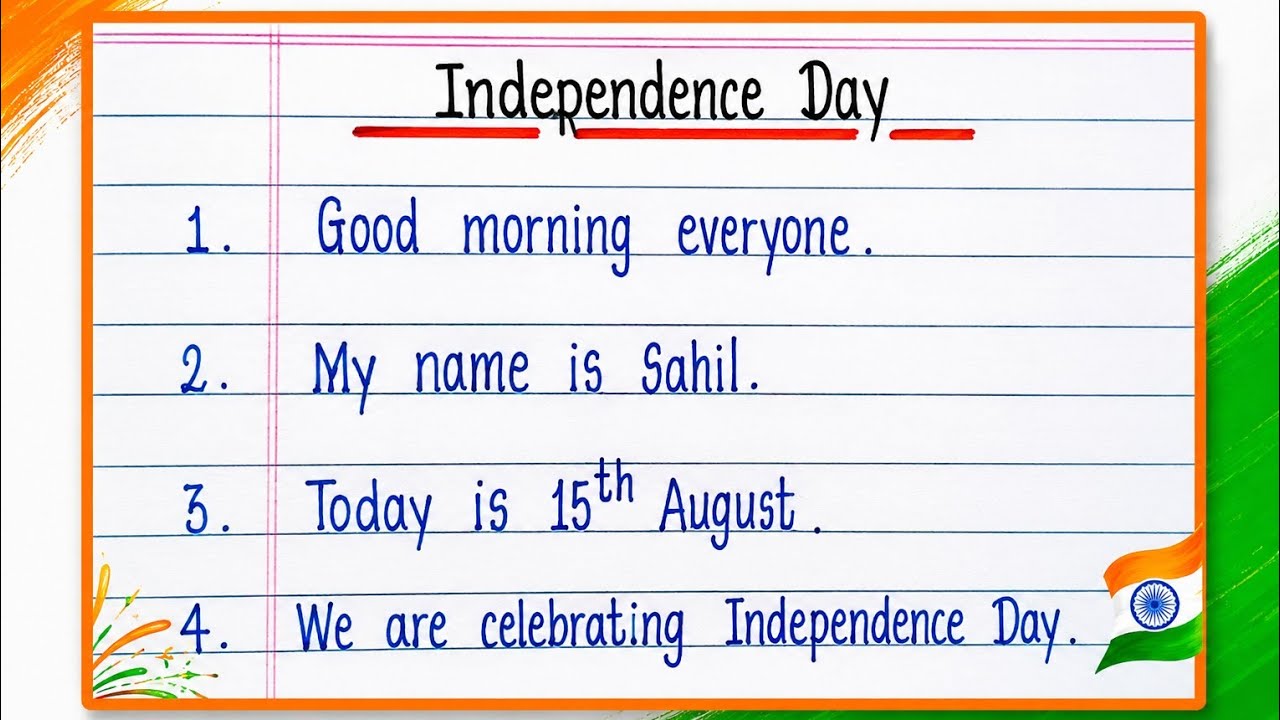 Independence Day
1. Good morning everyone.
2. My name is Sahil.
3. Today is 15th August.
4. We are celebrating Independence Day.